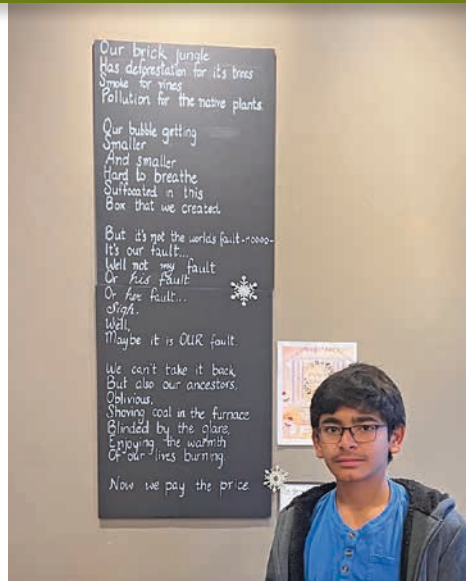 Our brick jungle
Has deforestation for its trees
Smoke for vines
Pollution for the native plants.
Our bubble getting
Smaller
And smaller
Hard to breathe
Suffocated in this
Box that we created.
But it's not the world's fault-noooo-
It's our fault...
Well not my fault
Or his fault
Or her fault...
Sigh.
Well,
Maybe it is OUR fault.
We can't take it back,
But also our ancestors,
Oblivious,
Shoving coal in the furnace
Blinded by the glare,
Enjoying the warmth
Of our lives burning.
Now we pay the price.